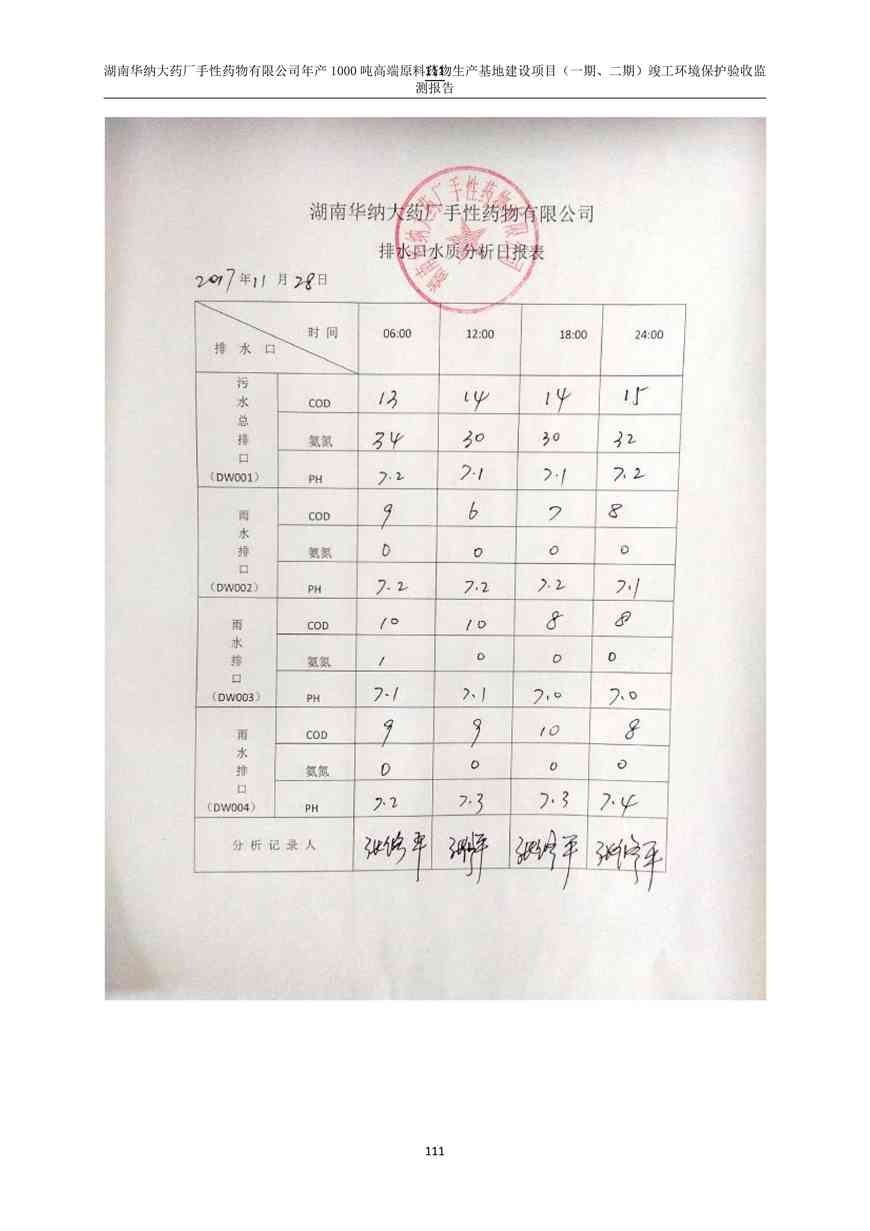 湖南华纳大药厂手性药物有限公司年产 1000 吨高端原料药物生产基地建设项目（一期、二期）竣工环境保护验收监
111
测报告
湖南华纳大药厂手性药物有限公司
排水口水质分析日报表
2017年11月28日
排水口 时间 06:00 12:00 18:00 24:00
污水总排口（DW001） COD 13 14 14 15
氨氮 34 30 30 32
PH 7.2 7.1 7.1 7.2
雨水排口（DW002） COD 9 6 7 8
氨氮 0 0 0 0
PH 7.2 7.2 7.2 7.1
雨水排口（DW003） COD 10 10 8 8
氨氮 1 0 0 0
PH 7.1 7.1 7.0 7.0
雨水排口（DW004） COD 9 9 10 8
氨氮 0 0 0 0
PH 7.2 7.3 7.3 7.4
分析记录人
111